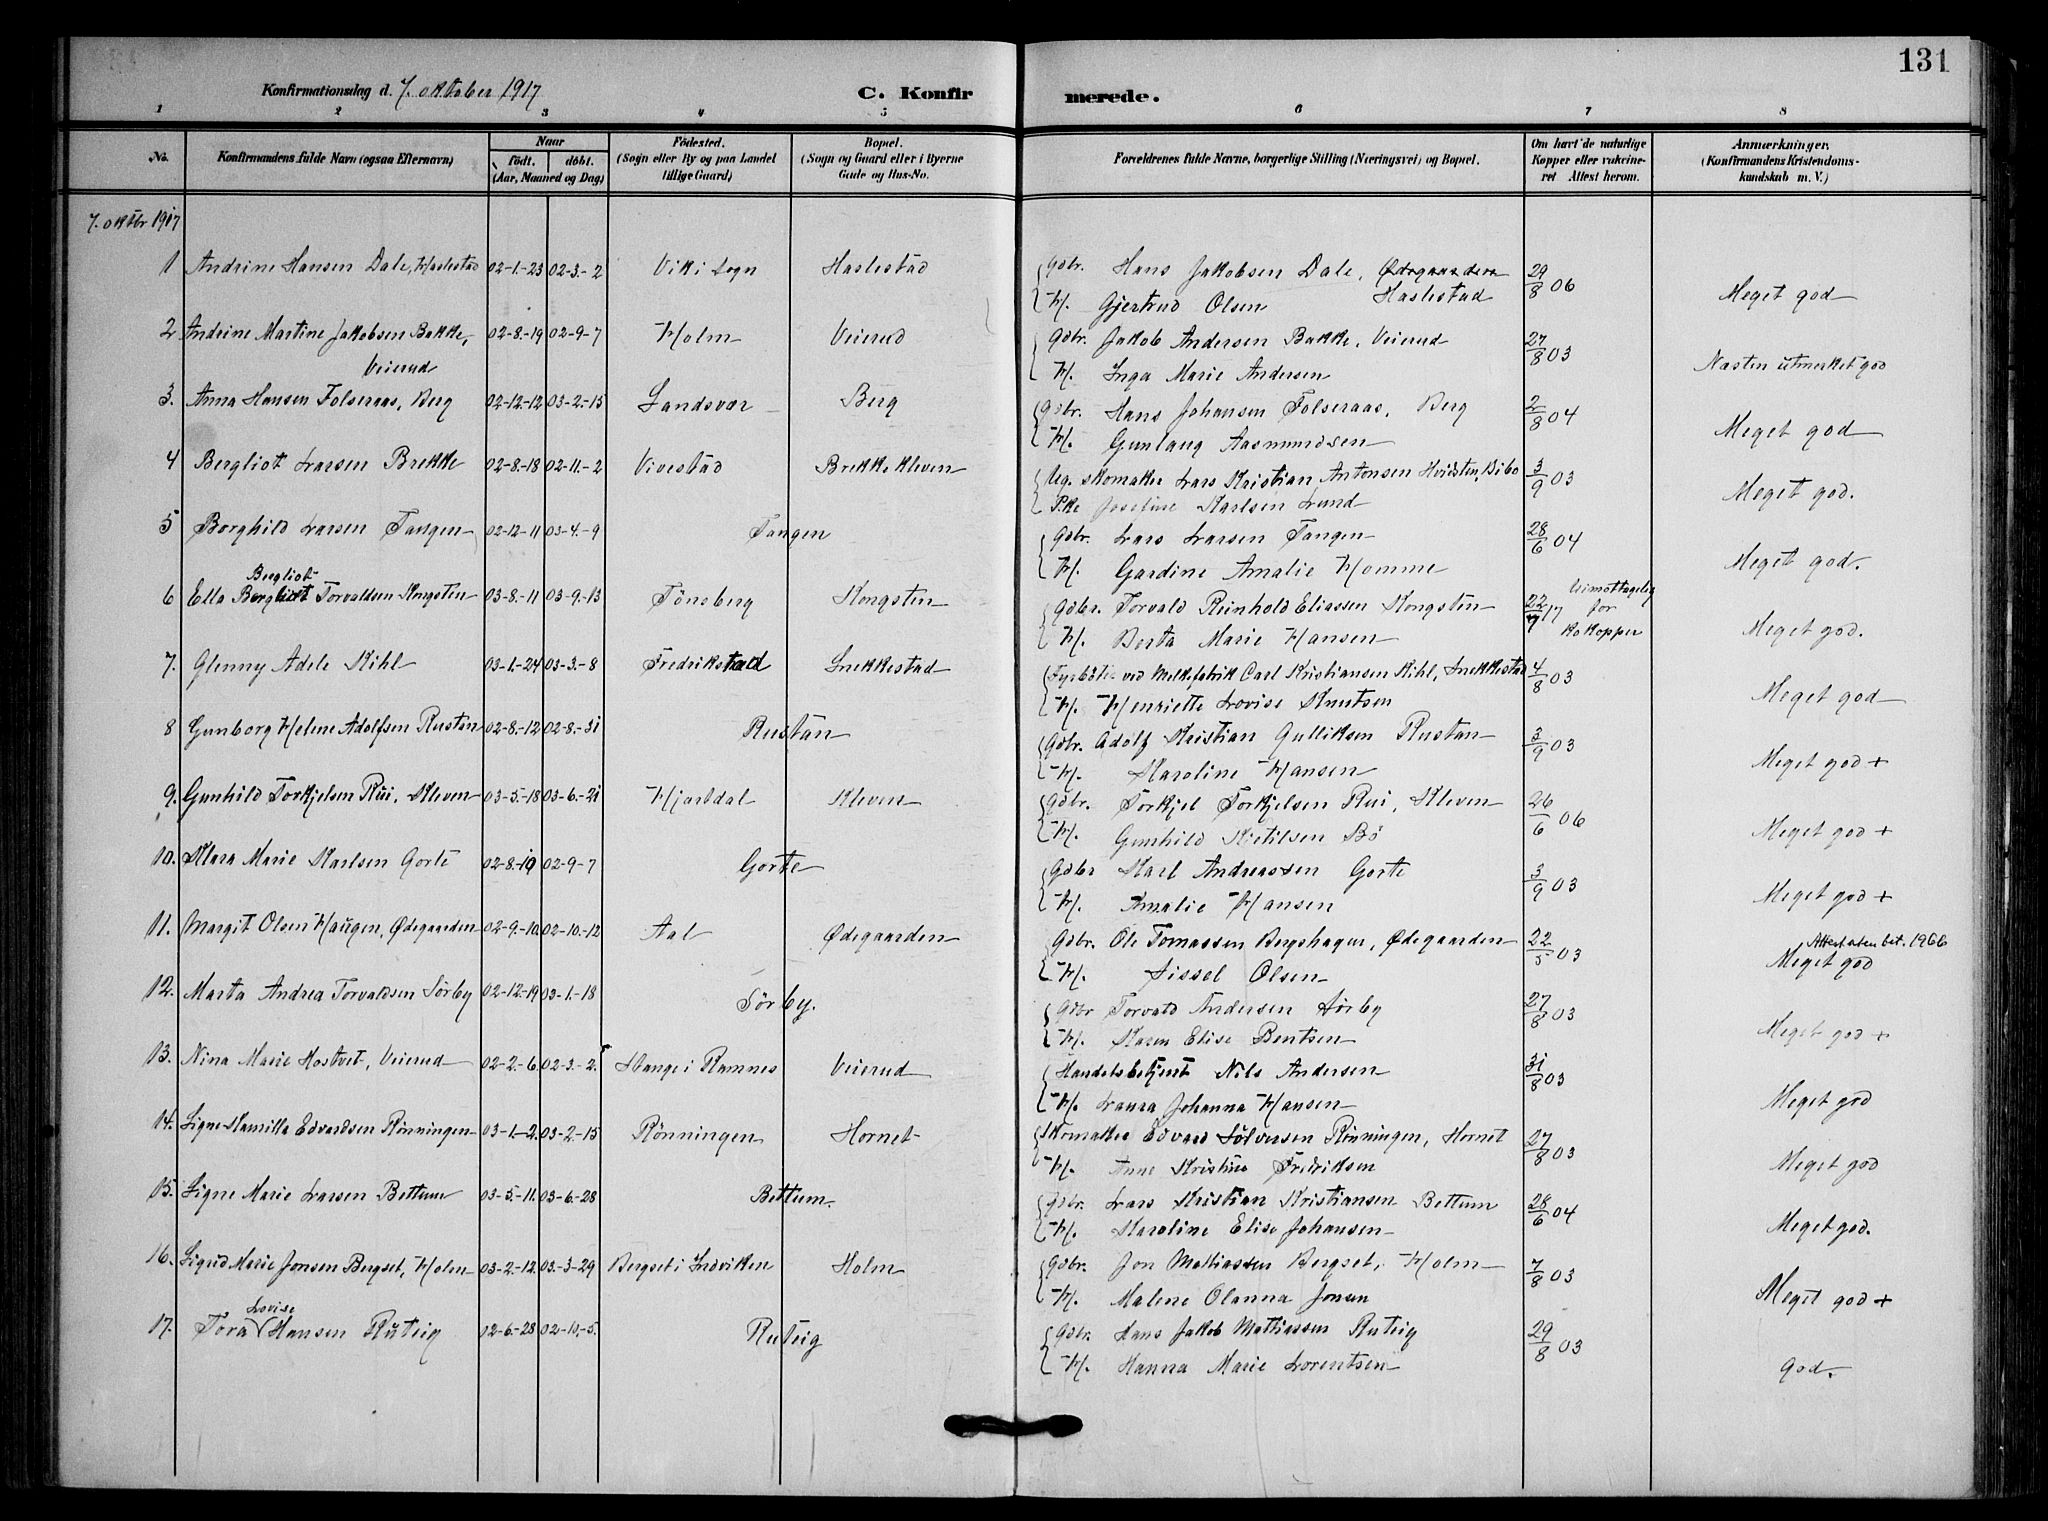 131
Konfirmationsdag d. 7. oktober 1917 C. Konfirmerede.
1 2 3 4 5 6 7 8
No. Konfirmandens fulde Navn (ogsaa Efternavn) Naar født. døbt. (Aar, Maaned og Dag) Fødested. (Sogn eller By og paa Landet tillige Gaard) Bopæl. (Sogn og Gaard eller i Byerne Gade og Hus-No. Forældrenes fulde Navne, borgerlige Stilling (Næringsvei) og Bopæl. Om havt de naturlige Kopper eller vakcineret Attest herom. Anmærkninger. (Konfirmandens Kristendomskundskab m. V.)
7. oktbr 1917
1 Andrine Hansen Dale, Haslestad 02-1.-23 02-3.-2 Vik i Sogn Haslestad Gdbr. Hans Jakobsen Dale, Ødegaarden 29/8 06
H. Gjertrud Olsen Haslestad Meget god
2 Andrine Martine Jakobsen Bakke, 02-8.-19 02-9-7 Holm Veierud Gdbr. Jakob Andersen Bakke, Veierud 27/8 03
Veierud H. Inga Marie Andersen Næsten utmerket god
3. Anna Hansen Folseraas, Berg 02-12-12 03-2.-15 Landsvær Berg Gdbr. Hans Johansen Folseraas, Berg 2/8 04
H. Gunlaug Aasmundsen Meget god
4 Bergliot Larsen Brekke 02-8.-18 02-11.-2 Vivestad Brekke Kleven Ug. skomaker Lars Kristian Antonsen Hvidsten, Bibo 3/9 03
Pike Josefine Karlsen Lund Meget god.
5 Borghild Larsen Tangen 02-12-11 03-4.-9 Tangen Gdbr. Lars Larsen Tangen 28/6 04
H. Gardine Amalie Homme Meget god.
Bergliot
6 Ella Bergliot Torvaldsen Kongsten 03-8.-11 03-9.-13 Tönsberg Kongsten Gdbr. Torvald Reinhold Eliassen Kongsten 22/9 17 Uimottagelig for kokopper
H. Berta Marie Hansen Meget god.
7. Glenny Adele Kihl 03-1.-24 03-3.-8 Fredrikstad Snekkestad Fyrböter ved Melkefabrik Carl Kristiansen Kihl, Snekkestad 4/8 03
H. Henriette Lovise Knutsen Meget god
8 Gunborg Helene Adolfsen Rustan 02-8.-12 02-8.-31 Rustan Gdbr. Adolf Kristian Gulliksen Rustan 3/9 03
H. Karoline Hansen Meget god +
9. Gunhild Torkjelsen Rui, Kleven 03-5.-18 03-6.-21 Hjartdal Kleven Gdbr. Torkjel Torkjelsen Rui, Kleven 26/6 06
H. Gunhild Kjetilsen Bö Meget god +
10. Klara Marie Karlsen Gorte 02-8.-19 02-9.-7 Gorte Gdbr Karl Andreassen Gorte 3/9 03
H. Amalie Hansen Meget god +
11. Margit Olsen Haugen, Ødegaarden 02-9.-10 02-10.-12 Aal Ødegaarden Gdbr. Ole Tomassen Bergshagen, Ødegaarden 22/5 03 Attest uten bet. 1966
H. Sissel Olsen Meget god
12. Marta Andrea Torvaldsen Sörby 02-12.-19 03-1.-18 Sörby. Gdbr Torvald Andersen Sörby 27/8 03
H. Karen Elise Bentsen Meget god +
13. Nina Marie Hostvet, Veierud 02-2.-6 02-3.-2. Stange i Ramnes Veierud Handelsbetjent Nils Andersen 31/8 03
H. Laura Johanna Hansen Meget god
14. Signe Kamilla Edvardsen Rönningen 03-1.-2. 03-2.-15 Rönningen Hornet Skomaker Edvard Sölversen Rönningen, Hornet 27/8 03
H. Anne Kristine Fredriksen Meget god
15. Signe Marie Larsen Bettum 03-5.-11. 03-6.-28 Bettum. Gdbr. Lars Kristian Kristiansen Bettum 28/6 04
H. Karoline Elise Johansen Meget god.
16. Sigrid Marie Jonsen Bergset, Holm 03-2.-12. 03.-3-29 Bergset i Indviken Holm Gdbr. Jon Mattiassen Bergset, Holm 7/8 03
H. Malene Olanna Jonsen Meget god +
Lovise
17. Tora Hansen Ruteig 02-6.-28 02-10.-5. Ruteig Gdbr. Hans Jakob Mattiassen Ruteig 29/8 03
H. Hanna Marie Lorentsen God.